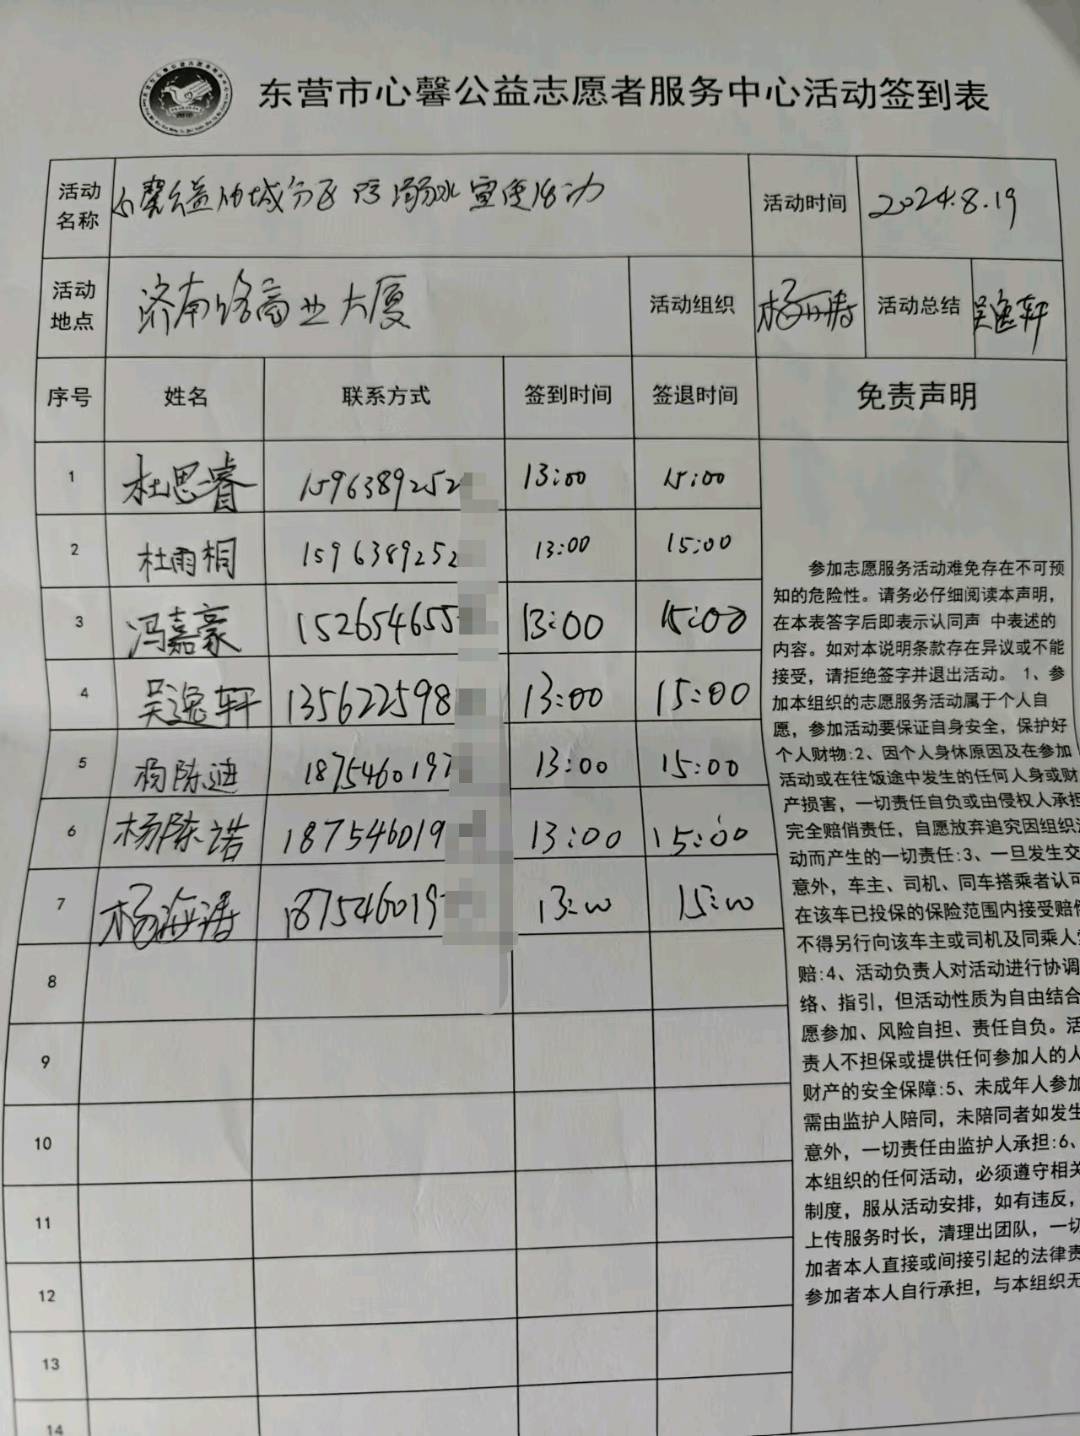 东营市心馨公益志愿者服务中心活动签到表
活动名称 心馨公益 城分区防溺水宣传活动 活动时间 2024.8.19
活动地点 济南路商业大厦 活动组织 杨海涛 活动总结 吴逸轩
序号 姓名 联系方式 签到时间 签退时间 免责声明
1 杜思睿 1596389252 13:00 15:00
2 杜雨桐 1596389252 13:00 15:00
3 冯嘉豪 152654655 13:00 15:00
4 吴逸轩 135622598 13:00 15:00
5 杨陈迪 1875460197 13:00 15:00
6 杨陈诺 187546019 13:00 15:00
7 杨海涛 187546019 13:00 15:00
8
9
10
11
12
13
14
参加志愿服务活动难免存在不可预
知的危险性。请务必仔细阅读本声明，
在本表答字后即表示认同声 中表述的
内容。如对本说明条款存在异议或不能
接受，请拒绝签字并退出活动。 1、参
加本组织的志愿服务活动属于个人自
愿，参加活动要保证自身安全，保护好
个人财物:2、因个人身休原因及在参加
活动或在往饭途中发生的任何人身或财
产损害，一切责任自负或由侵权人承担
完全赔俏责任，自愿放弃追究因组织活
动而产生的一切责任:3、一旦发生交
意外，车主、司机、同车搭乘者认可
在该车已投保的保险范围内接受赔偿
不得另行向该车主或司机及同乘人索
赔:4、活动负责人对活动进行协调
络、指引，但活动性质为自由结合
愿参加、风险自担、责任自负。活
责人不担保或提供任何参加人的人
财产的安全保障:5、未成年人参加
需由监护人陪同，未陪同者如发生
意外，一切责任由监护人承担:6、
本组织的任何活动，必须遵守相关
制度，服从活动安排，如有违反，
上传服务时长，清理出团队，一切
加者本人直接或间接引起的法律责
参加者本人自行承担，与本组织无